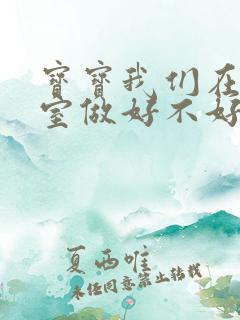 宝宝我们在
室做好不好
夏西唯
未经同意禁止转载